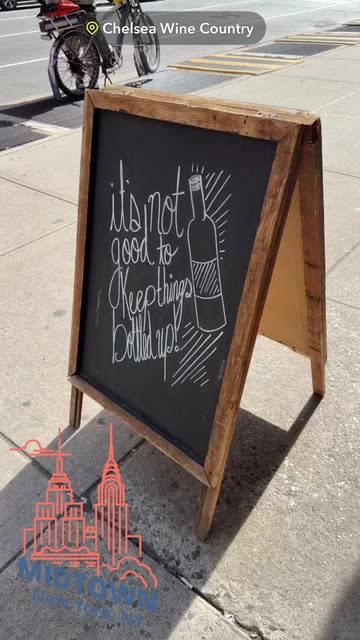 Chelsea Wine Country
it's not
good to
Keep things
bottled up!
MIDTOWN
New York, NY